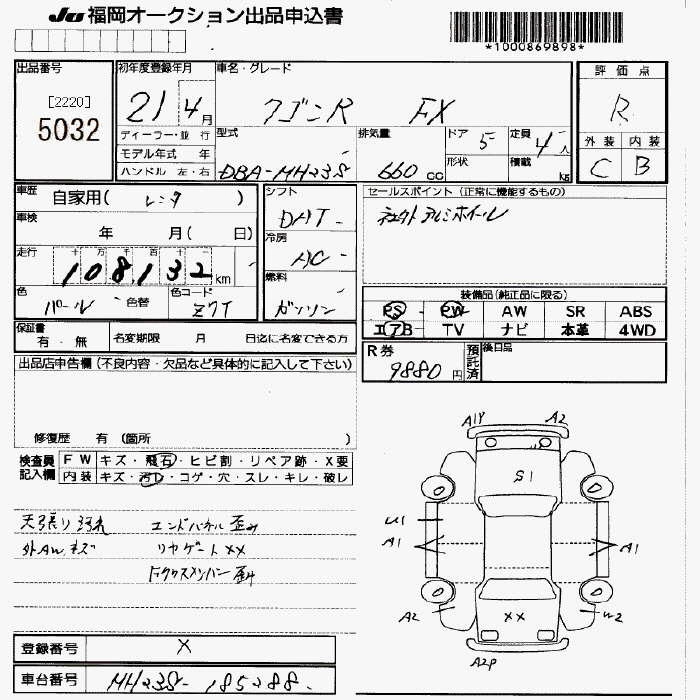 JU 福岡オークション出品申込書
*1000869898*
出品番号
[2220]
5032
初年度登録年月
21 4月
ディーラー・並 行
モデル年式 年
ハンドル 左・右
車名・グレード
ワゴンR FX
型式
DBA-MH23S
排気量
660 cc
ドア 5
定員 4人
形状
積載 kg
評価点
R
外装 内装
C B
車歴
自家用( レンタ )
車検
年 月( 日)
走行 十 万 千 百 十 一
108132 km
色
パール
色替
色コード
Z7T
シフト
DAT
冷房
AC
燃料
ガソリン
セールスポイント (正常に機能するもの)
社外アルミホイール
装備品(純正品に限る)
PS PW AW SR ABS
エアB TV ナビ 本革 4WD
保証書
有・無
名変期限 月 日迄に名変できる方
R券
9880円
預託済
後日品
出品店申告欄 (不良内容・欠品など具体的に記入して下さい)
修復歴 有 (箇所 )
検査員記入欄
FW キズ・飛石・ヒビ割・リペア跡・X要
内装 キズ・汚レ・コゲ・穴・スレ・キレ・破レ
天張り汚れ エンドパネル歪み
外AW、キズ リヤゲートXX
A1P A2
S1
U1
A1 A1
A2 XX W2
A2P
登録番号 X
車台番号 MH23S-185288